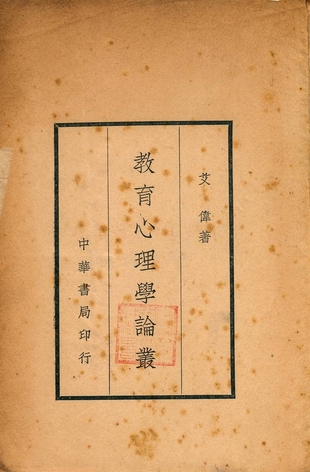 艾偉著
教育心理學論叢
中華書局印行